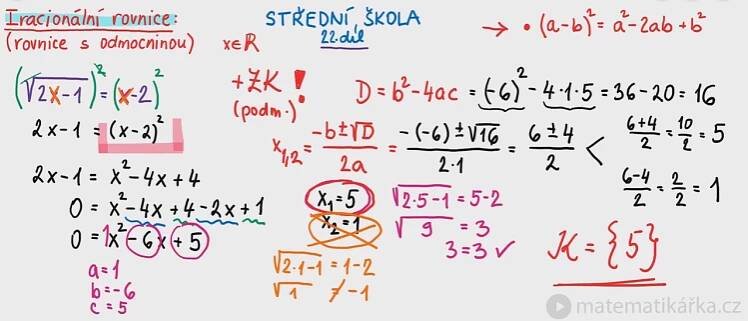 Iracionální rovnice:
(rovnice s odmocninou)
x∈R
STŘEDNÍ ŠKOLA
22. díl
→ • (a-b)² = a² - 2ab + b²
(√(2x-1))² = (x-2)²
2x-1 = (x-2)²
2x-1 = x² - 4x + 4
0 = x² - 4x + 4 - 2x + 1
0 = 1x² - 6x + 5
a = 1
b = -6
c = 5
+ ZK!
(podm.)
D = b² - 4ac = (-6)² - 4·1·5 = 36 - 20 = 16
x₁,₂ = (-b ± √D)/2a = (-(-6) ± √16)/2·1 = (6 ± 4)/2 <
(6+4)/2 = 10/2 = 5
(6-4)/2 = 2/2 = 1
x₁ = 5
x₂ = 1
√(2·5-1) = 5-2
√9 = 3
3 = 3 ✓
√(2·1-1) = 1-2
√1 ≠ -1
K = {5}
matematikářka.cz